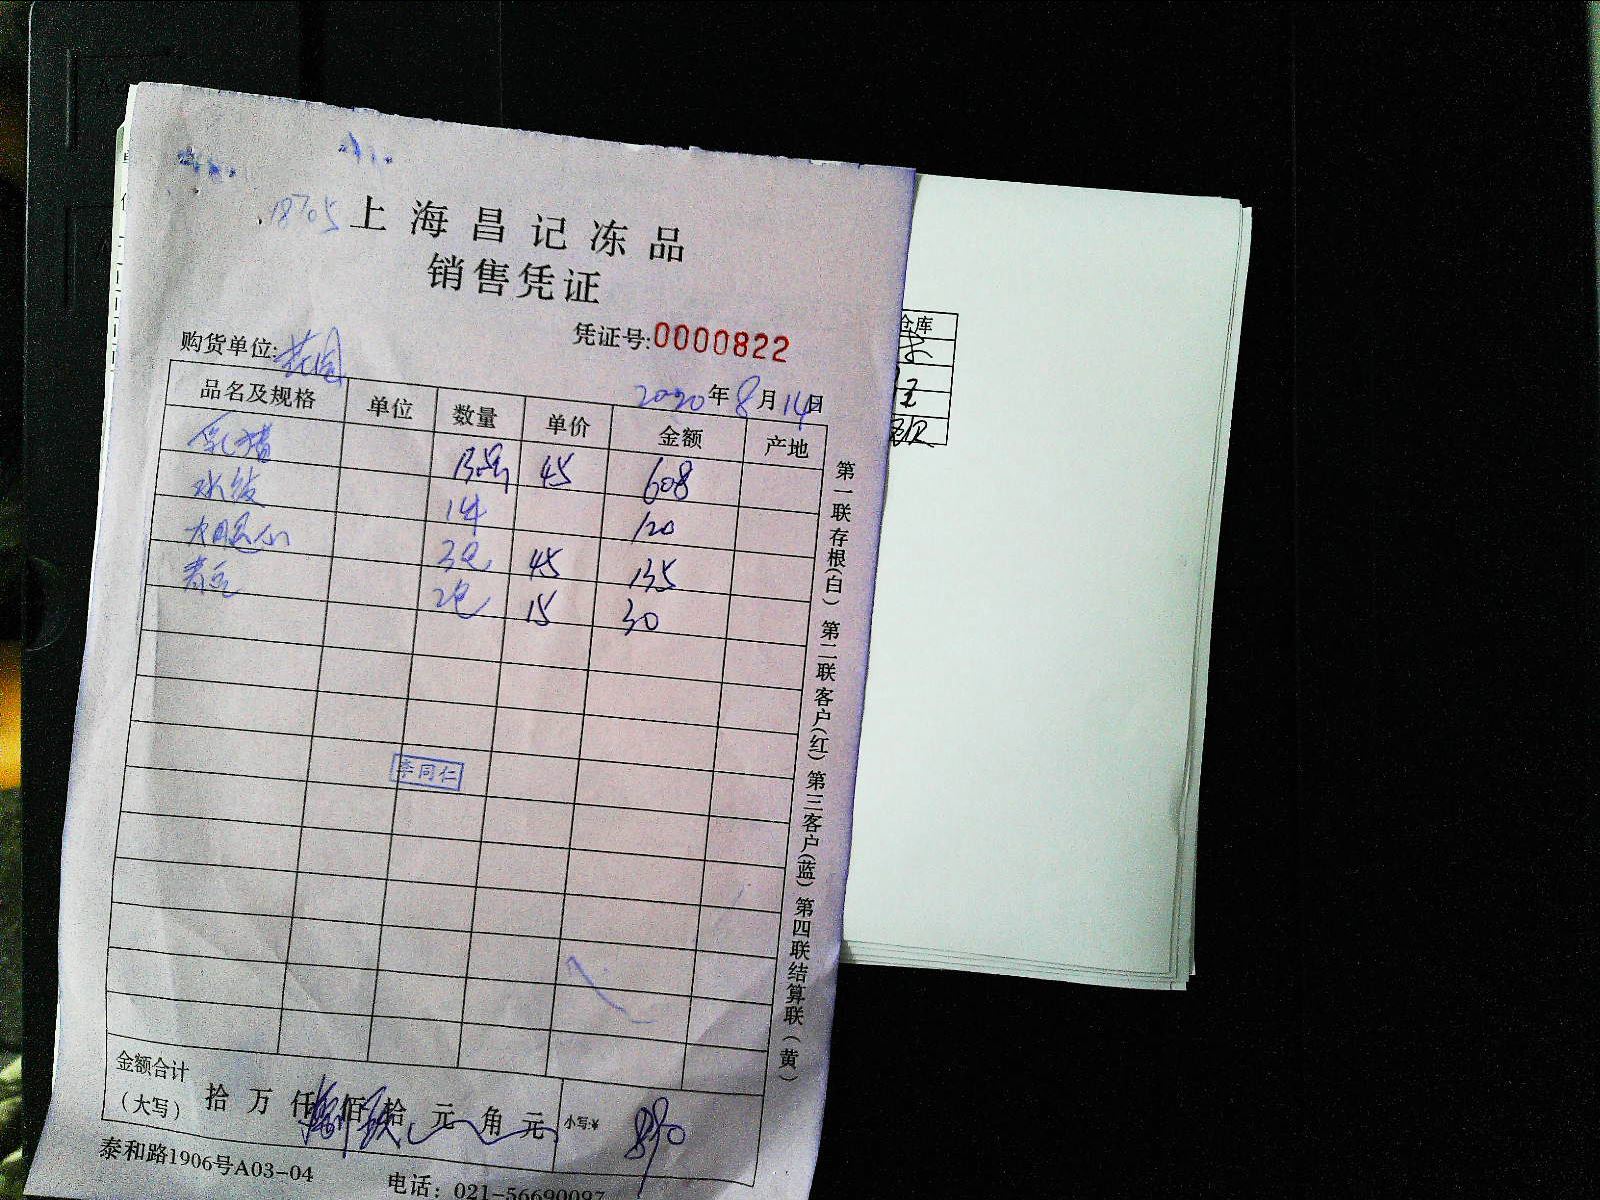 18705
上海昌记冻品
销售凭证
凭证号:0000822
购货单位:
2020年8月14日
品名及规格 单位 数量 单价 金额 产地
乳猪 45 608
1件 120
3包 45 135
2包 15 30
李同仁
金额合计
(大写) 拾万仟佰拾元角元 小写:¥ 890
泰和路1906号A03-04 电话：021-56690097
第一联存根(白) 第二联客户(红) 第三客户(蓝) 第四联结算联(黄)
仓库